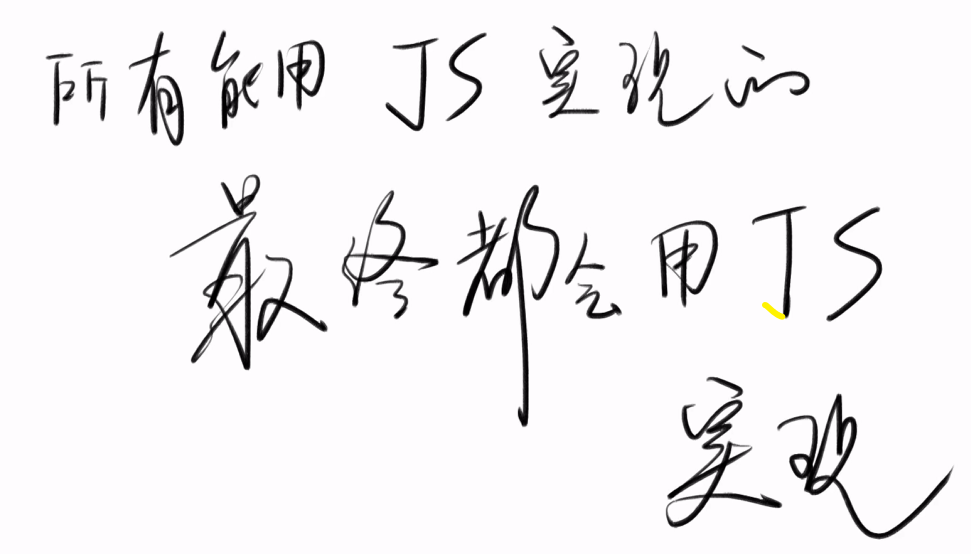 所有能用 JS 实现的
最终都会用 JS
实现